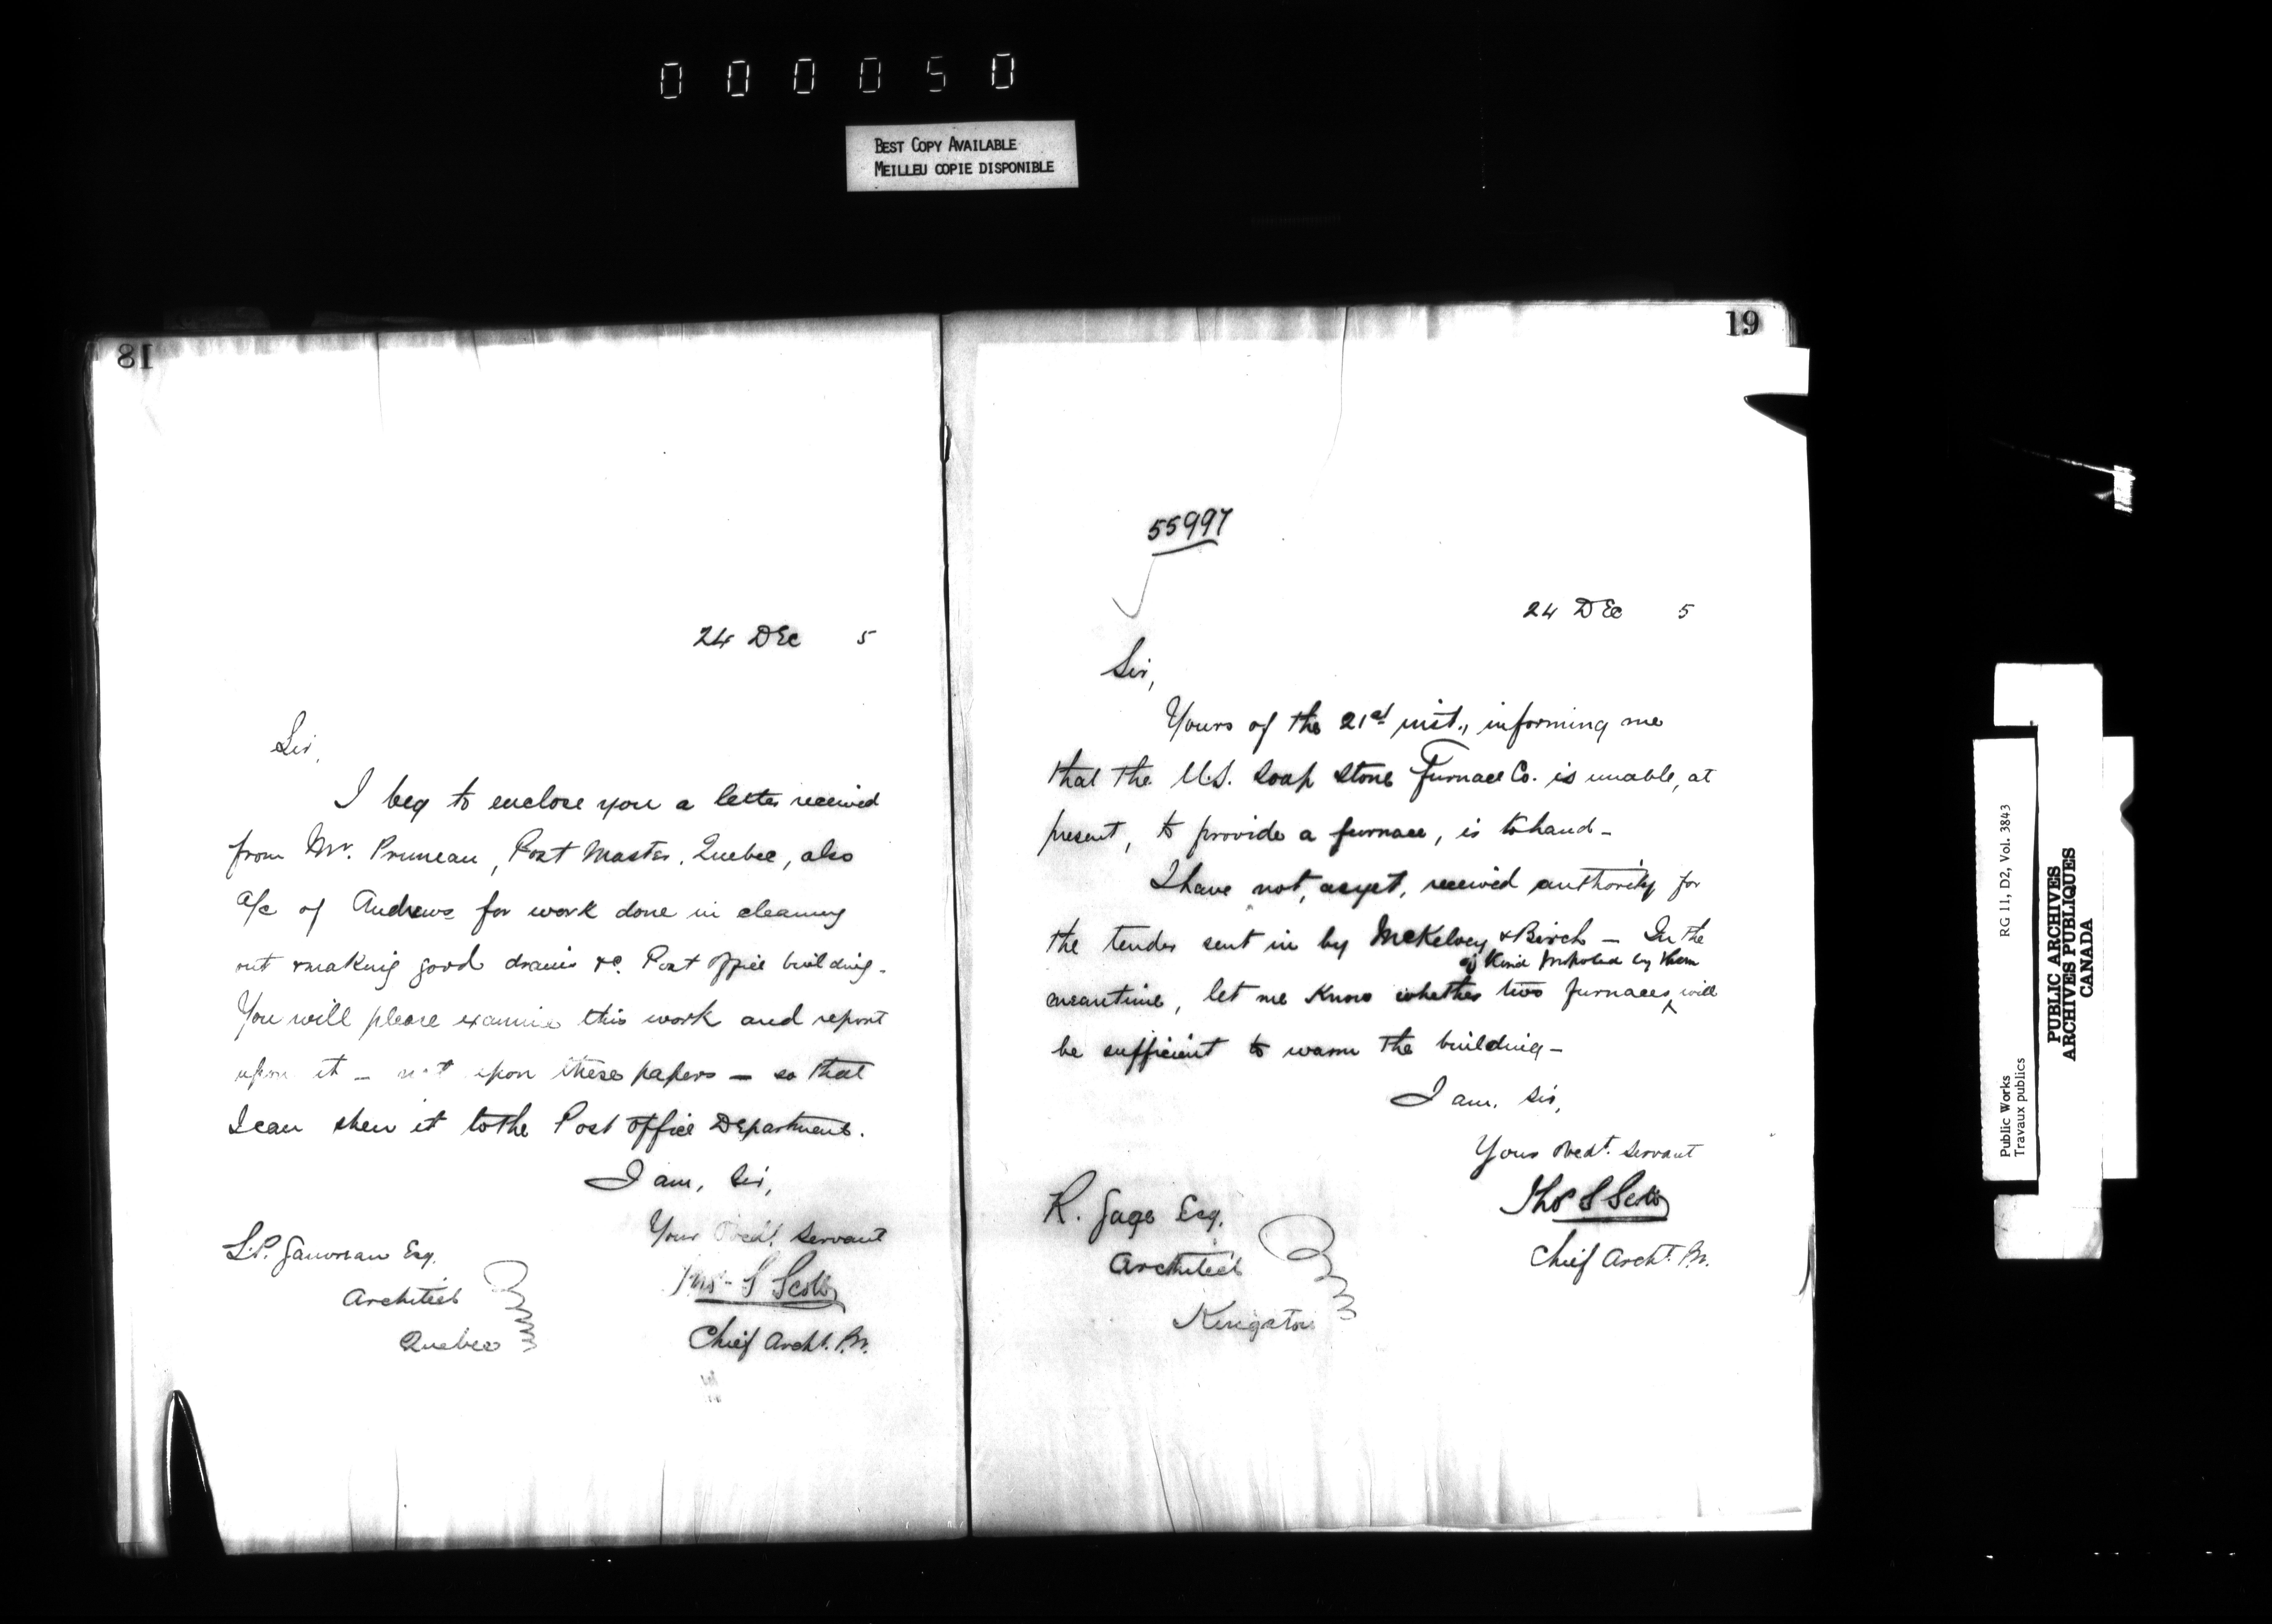 000050
BEST COPY AVAILABLE
MEILLEU COPIE DISPONIBLE
18
24 DEc 5
Sir,
I beg to enclose you a letter received
from Mr. Pruneau, Post Master, Quebec, also
a/c of Andrews for work done in cleaning
out & making good drains &c. Post Office building.
You will please examine this work and report
upon it – not upon these papers – so that
I can shew it to the Post Office Department.
I am, Sir,
Your Obedt. Servant
Thos. S Scott
Chief Archt. P.W.
L.P. Gauvreau Esq.
Architect
Quebec
19
55997
24 DEc 5
Sir,
Yours of the 21st inst., informing me
that the U.S. Soap Stone Furnace Co. is unable, at
present, to provide a furnace, is to hand –
I have not, as yet, received authority for
the tender sent in by McKelvey & Birch – In the
of kind proposed by them
meantime, let me know whether two furnaces ^ will
be sufficient to warm the building –
I am, Sir,
Your Obedt. Servant
Thos S Scott
Chief Archt. P.W.
R. Gage Esq.
Architect
Kingston
Public Works
Travaux publics
RG 11, D2, Vol. 3843
PUBLIC ARCHIVES
ARCHIVES PUBLIQUES
CANADA